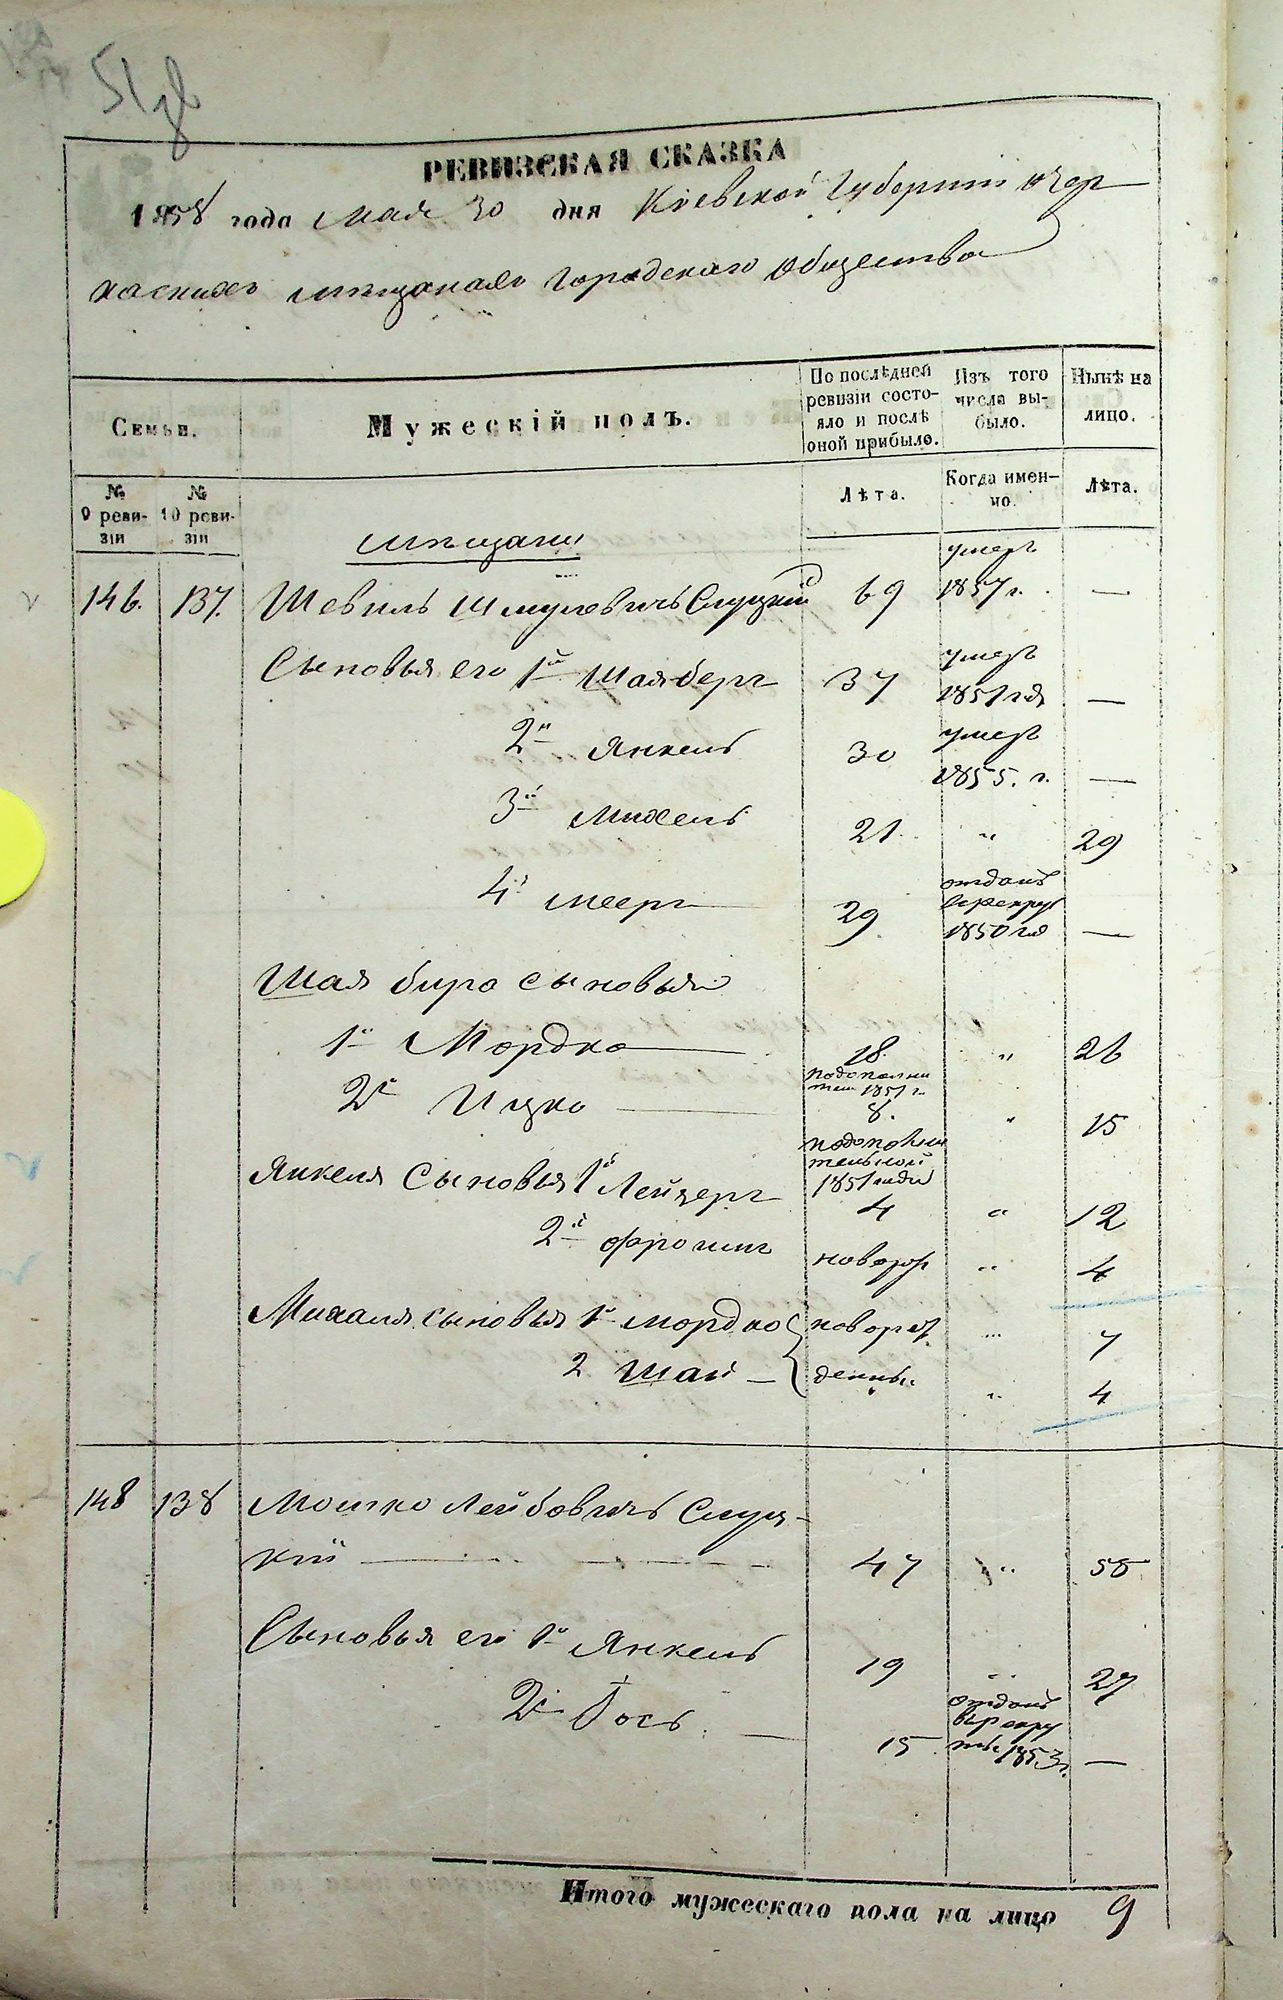 51 об
РЕВИЗСКАЯ СКАЗКА
1858 года Мая 30 дня Кіевской Губерніи Чер
каскихъ мѣщанахъ Городскаго Общества
Семьи.
Мужескій полъ.
По послѣдней ревизіи состо-
яло и послѣ
оной прибыло.
Изъ того
числа вы-
было.
Нынѣ на
лицо.
№
9 реви-
зіи
№
10 реви-
зіи
Лѣта.
Когда имен-
но.
Лѣта.
мѣщане
146. 137. Шевель Шмулевичъ Слуцкій 69 умеръ 1857 г. —
Сыновья его 1й Шая-беръ 37 умеръ 1851 год —
2й Янкель 30 умеръ 1855. г. —
3й Михель 21. " 29
4й Мееръ 29 отданъ в рекрут 1850 год —
Шая бера сыновья
1й Мордко 18. " 26
2й Ицко по дополни тел 1851 г. 8. " 15
Янкеля Сыновья 1й Лейзеръ по дополни тельной 1851 года 4 " 12
2й Фроимъ новорож " 4
Михеля сыновья 1й Мордко новорож " 7
2 Шая — денны " 4
148 138 Мошко Лейбовичъ Слуц-
кій 47 " 55
Сыновья его 1й Янкель 19 " 27
2й Іось 15 отданъ в рекру ты 1853 г. —
Итого мужескаго пола на лицо 9